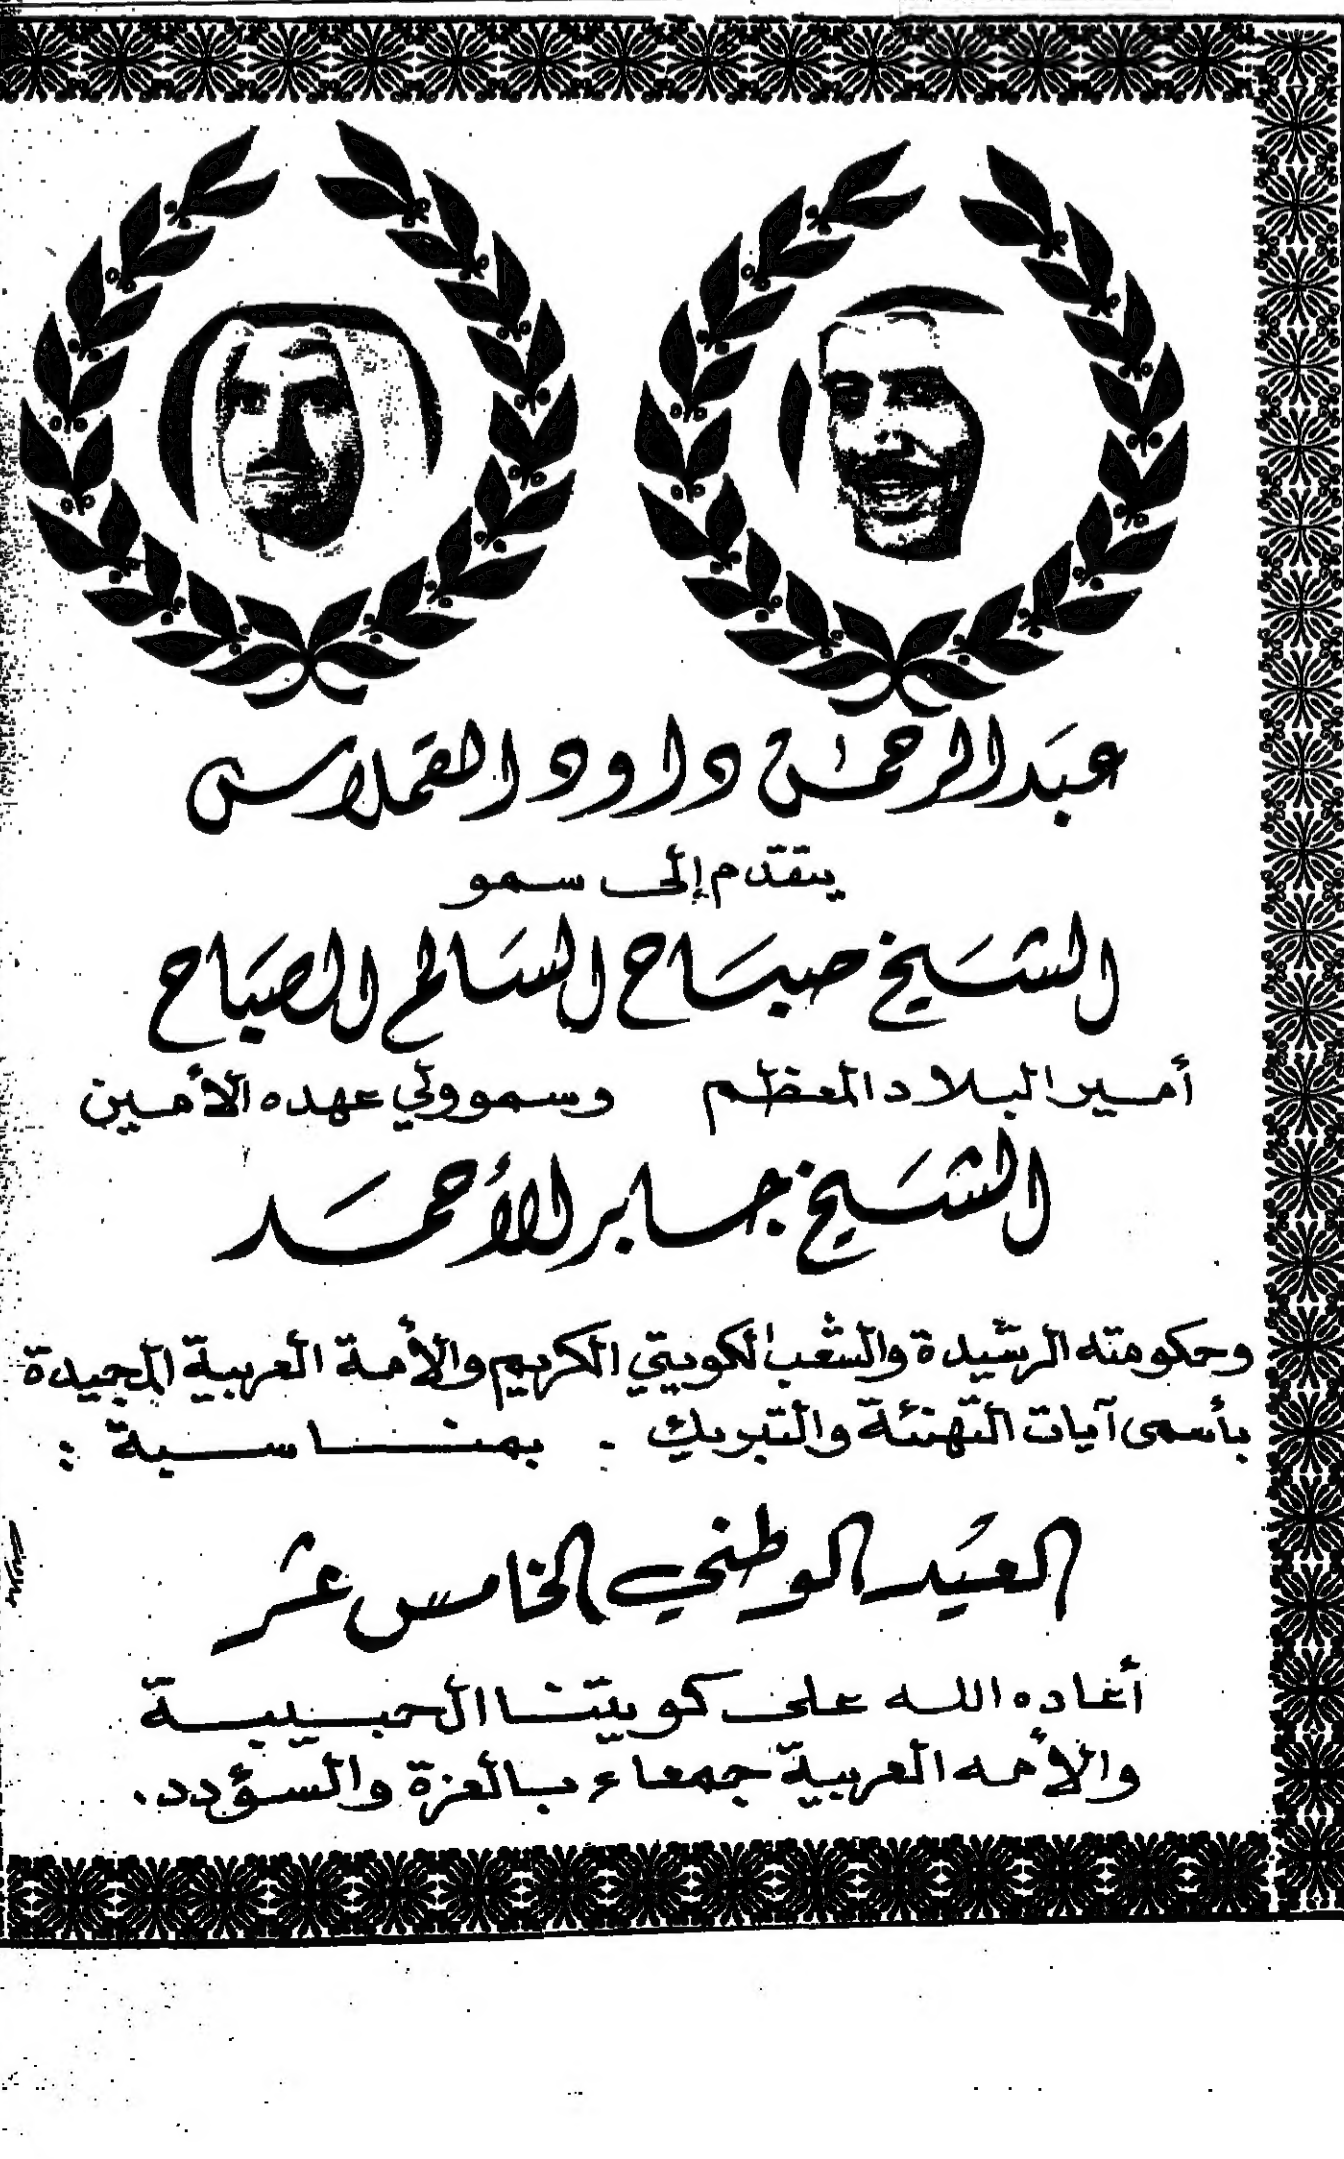 عبد الرحمن داود القملاس
يتقدم إلى سمو
الشيخ صباح السالم الصباح
أمير البلاد المعظم وسمو ولي عهده الأمين
الشيخ جابر الأحمد
وحكومته الرشيدة والشعب الكويتي الكريم والأمة العربية المجيدة
بأسمى آيات التهنئة والتبريك . بمناسبة :
العيد الوطني الخامس عشر
أعاده الله على كويتنا الحبيبة
والأمه العربية جمعاء بالعزة والسؤدد.